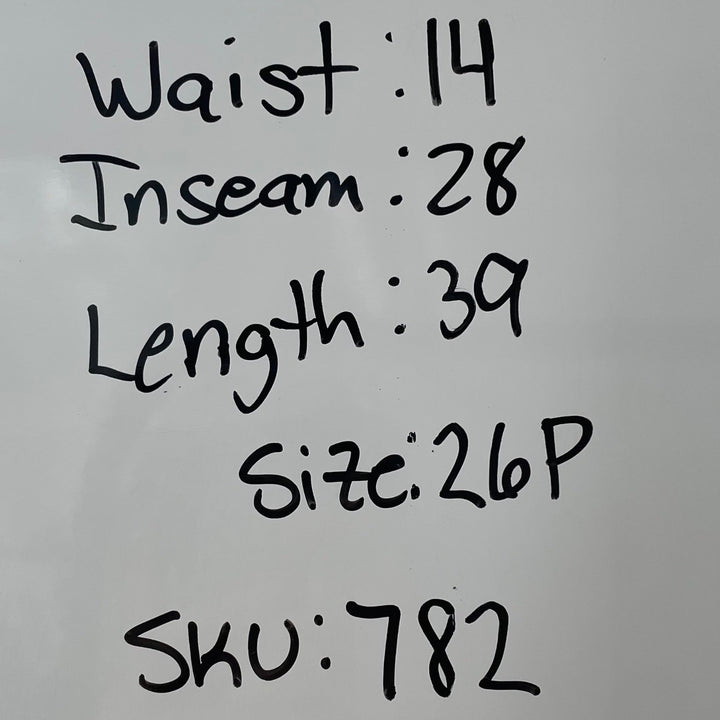 Waist: 14
Inseam: 28
Length: 39
Size: 26P
SKU: 782